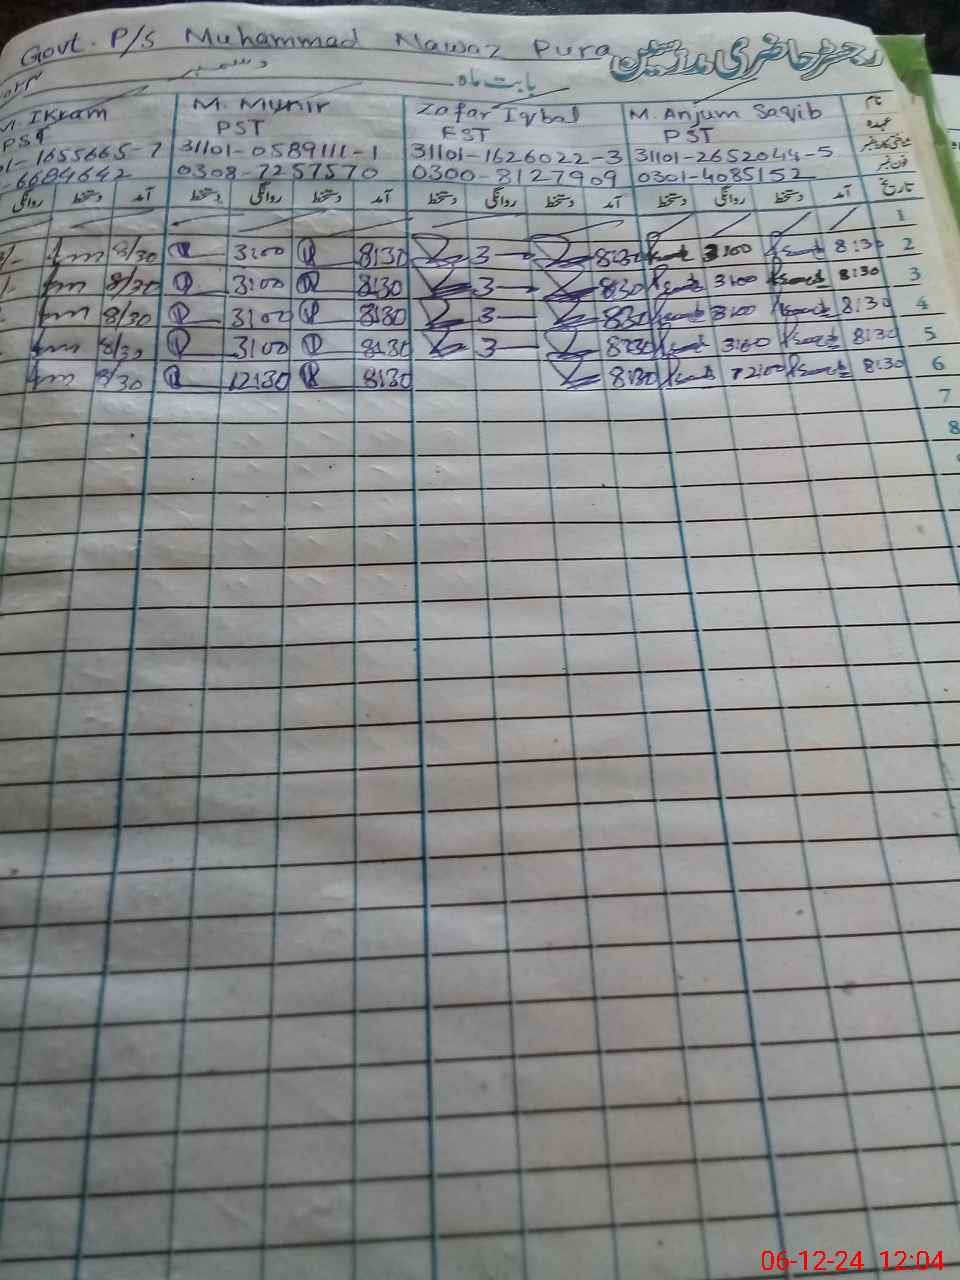 Govt. P/S Muhammad Nawaz Pura رجسٹر حاضری مدرسین
بابت ماہ دسمبر
M. Ikram M. Munir Zafar Iqbal M. Anjum Saqib نام
PST PST EST PST عہدہ
1655665-7 31101-0589111-1 31101-1626022-3 31101-2652044-5
6684642 0308-7257570 0300-8127909 0301-4085152 فون نمبر
روانگی دستخط آمد دستخط روانگی دستخط آمد دستخط روانگی دستخط آمد دستخط روانگی دستخط آمد تاریخ
1
8/30 3:00 8:30 3 8:30 3:00 8:30 2
8/30 3:00 8:30 3 8:30 3:00 8:30 3
8/30 3:00 8:30 3 8:30 3:00 8:30 4
8/30 3:00 8:30 3 8:30 3:00 8:30 5
8/30 12:30 8:30 8:30 12:00 8:30 6
7
8
06-12-24 12:04